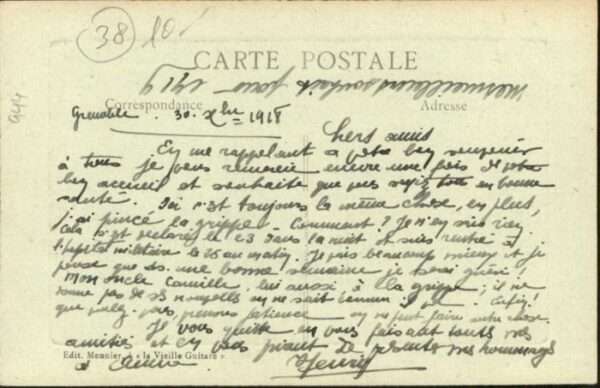 38
10
944
CARTE POSTALE
mes meilleurs souhaits pour 1919
Correspondance
Adresse
Grenoble. 30. Xbre 1918
Chers amis
En me rappelant à votre bon souvenir
à tous je vous remercie encore une fois de votre
bon accueil et souhaite que vous soyez tous en bonne
santé. Ici c'est toujours la même chose, en plus,
j'ai pincé la grippe. Comment? Je n'en sais rien.
Cela s'est déclaré le 23 dans la nuit et suis rentré à
l'hôpital militaire le 25 au matin. Je vais beaucoup mieux et je
pense que ds. une bonne semaine je serai guéri!
Mon oncle Camille, lui aussi a la grippe; il ne
donne pas de ses nouvelles on ne sait Enfin!
que voulez-vous, prenons patience on ne peut faire autre chose.
Je vous quitte en vous faisant toutes mes
amitiés et en vous priant de présenter mes hommages
à
Edit. Meunier à "la Vieille Guitare"